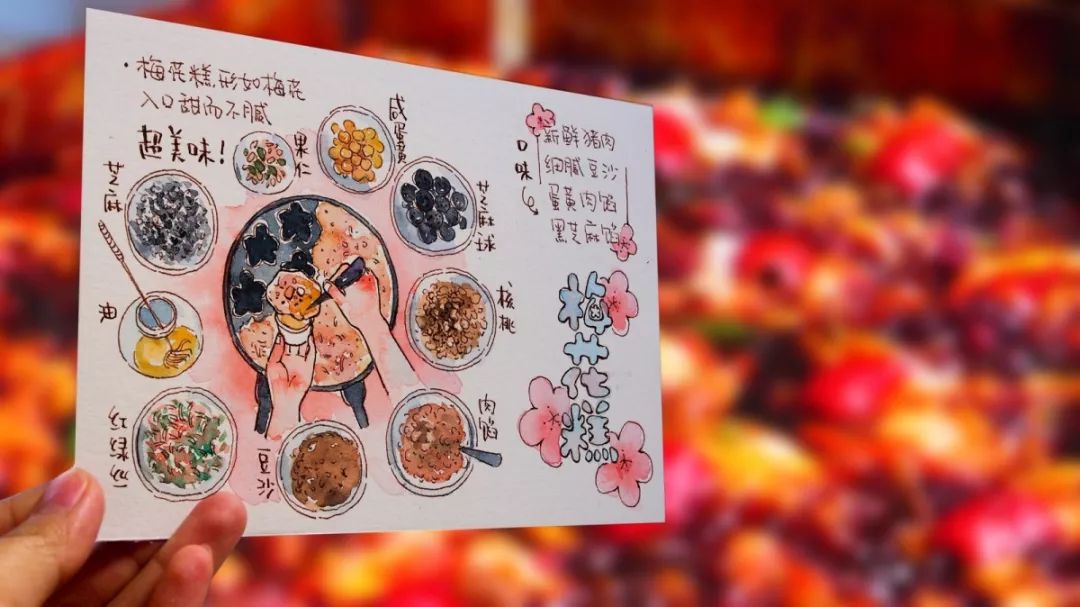 ·梅花糕,形如梅花
入口甜而不腻
超美味!
果仁
咸蛋黄
芝麻
芝麻球
油
核桃
肉馅
豆沙
口味
新鲜猪肉
细腻豆沙
蛋黄肉馅
黑芝麻馅
梅花糕